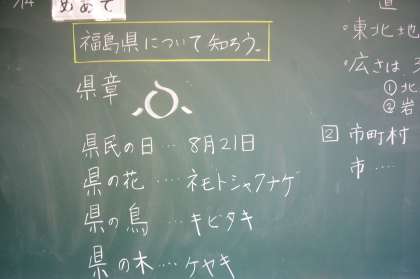 めあて
福島県について知ろう。
県章
県民の日…8月21日
県の花……ネモトシャクナゲ
県の鳥……キビタキ
県の木……ケヤキ
道
・東北地
・広さは
①北
②岩
2 市町村
市……